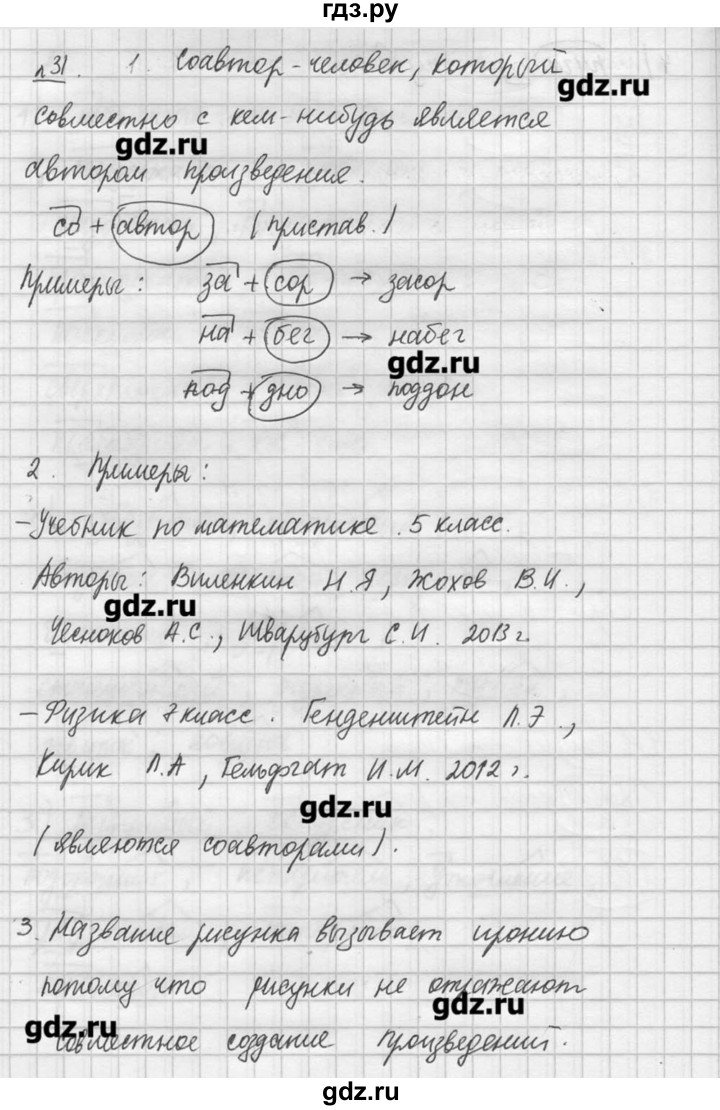 гдз.ру
n 31. 1. Соавтор - человек, который
gdz.ru
совместно с кем-нибудь является
gdz.ru
автором произведения.
со + автор (пристав.)
Примеры: за + сор → засор
на + бег → набег
gdz.ru
под + дно → поддон
2. Примеры:
- Учебник по математике. 5 класс.
Авторы: Виленкин Н.Я, Жохов В.И.,
gdz.ru
Чесноков А.С., Шварубург С.И. 2013 г.
- Физика 7 класс. Генденштейн Л.Э.,
Кирик Л.А, Гельфгат И.М. 2012 г.
gdz.ru
(являются соавторами).
3. Название рисунка вызывает иронию
потому что рисунки не отражают
gdz.ru
gdz.ru
совместное создание произведений.
gdz.ru